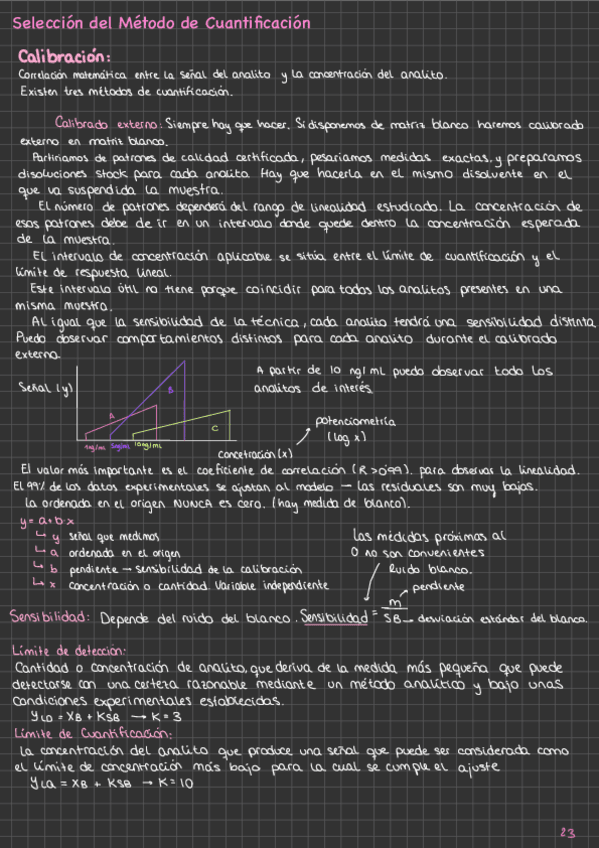 Selección del Método de Cuantificación
Calibración:
Correlación matemática entre la señal del analito y la concentración del analito.
Existen tres métodos de cuantificación.
Calibrado externo: Siempre hay que hacer. Si disponemos de matriz blanco haremos calibrado
externo en matriz blanco.
Partiríamos de patrones de calidad certificada, pesaríamos medidas exactas, y preparamos
disoluciones stock para cada analito. Hay que hacerla en el mismo disolvente en el
que va suspendida la muestra.
El número de patrones dependerá del rango de linealidad estudiado. La concentración de
esos patrones debe de ir en un intervalo donde quede dentro la concentración esperada
de la muestra.
El intervalo de concentración aplicable se sitúa entre el límite de cuantificación y el
límite de respuesta lineal.
Este intervalo útil no tiene porque coincidir para todos los analitos presentes en una
misma muestra.
Al igual que la sensibilidad de la técnica, cada analito tendrá una sensibilidad distinta.
Puedo observar comportamientos distintos para cada analito durante el calibrado
externo
Señal (y)
A
B
C
5ng/mL 10ng/mL
concetración (x)
A partir de 10 ng/ml puedo observar todo los
analitos de interés.
potenciometría
(log x)
El valor más importante es el coeficiente de correlación (R>0'99). para observar la linealidad.
El 99% de los datos experimentales se ajustan al modelo — las residuales son muy bajas.
la ordenada en el origen NUNCA es cero. (hay medida de blanco).
y = a + b·x
y señal que medimos
a ordenada en el origen
b pendiente → sensibilidad de la calibración
x concentración o cantidad. Variable independiente
Las médidas próximas al
0 no son convenientes
Ruido blanco.
pendiente
Sensibilidad: Depende del ruido del blanco. Sensibilidad = m / SB → desviación estándar del blanco.
Límite de detección:
Cantidad o concentración de analito, que deriva de la medida más pequeña que puede
detectarse con una certeza razonable mediante un método analítico y bajo unas
condiciones experimentales establecidas.
YLD = XB + KSB → K = 3
Límite de Cuantificación:
La concentración del analito que produce una señal que puede ser considerada como
el límite de concentración más bajo para la cual se cumple el ajuste
YLQ = XB + KSB → K = 10
23